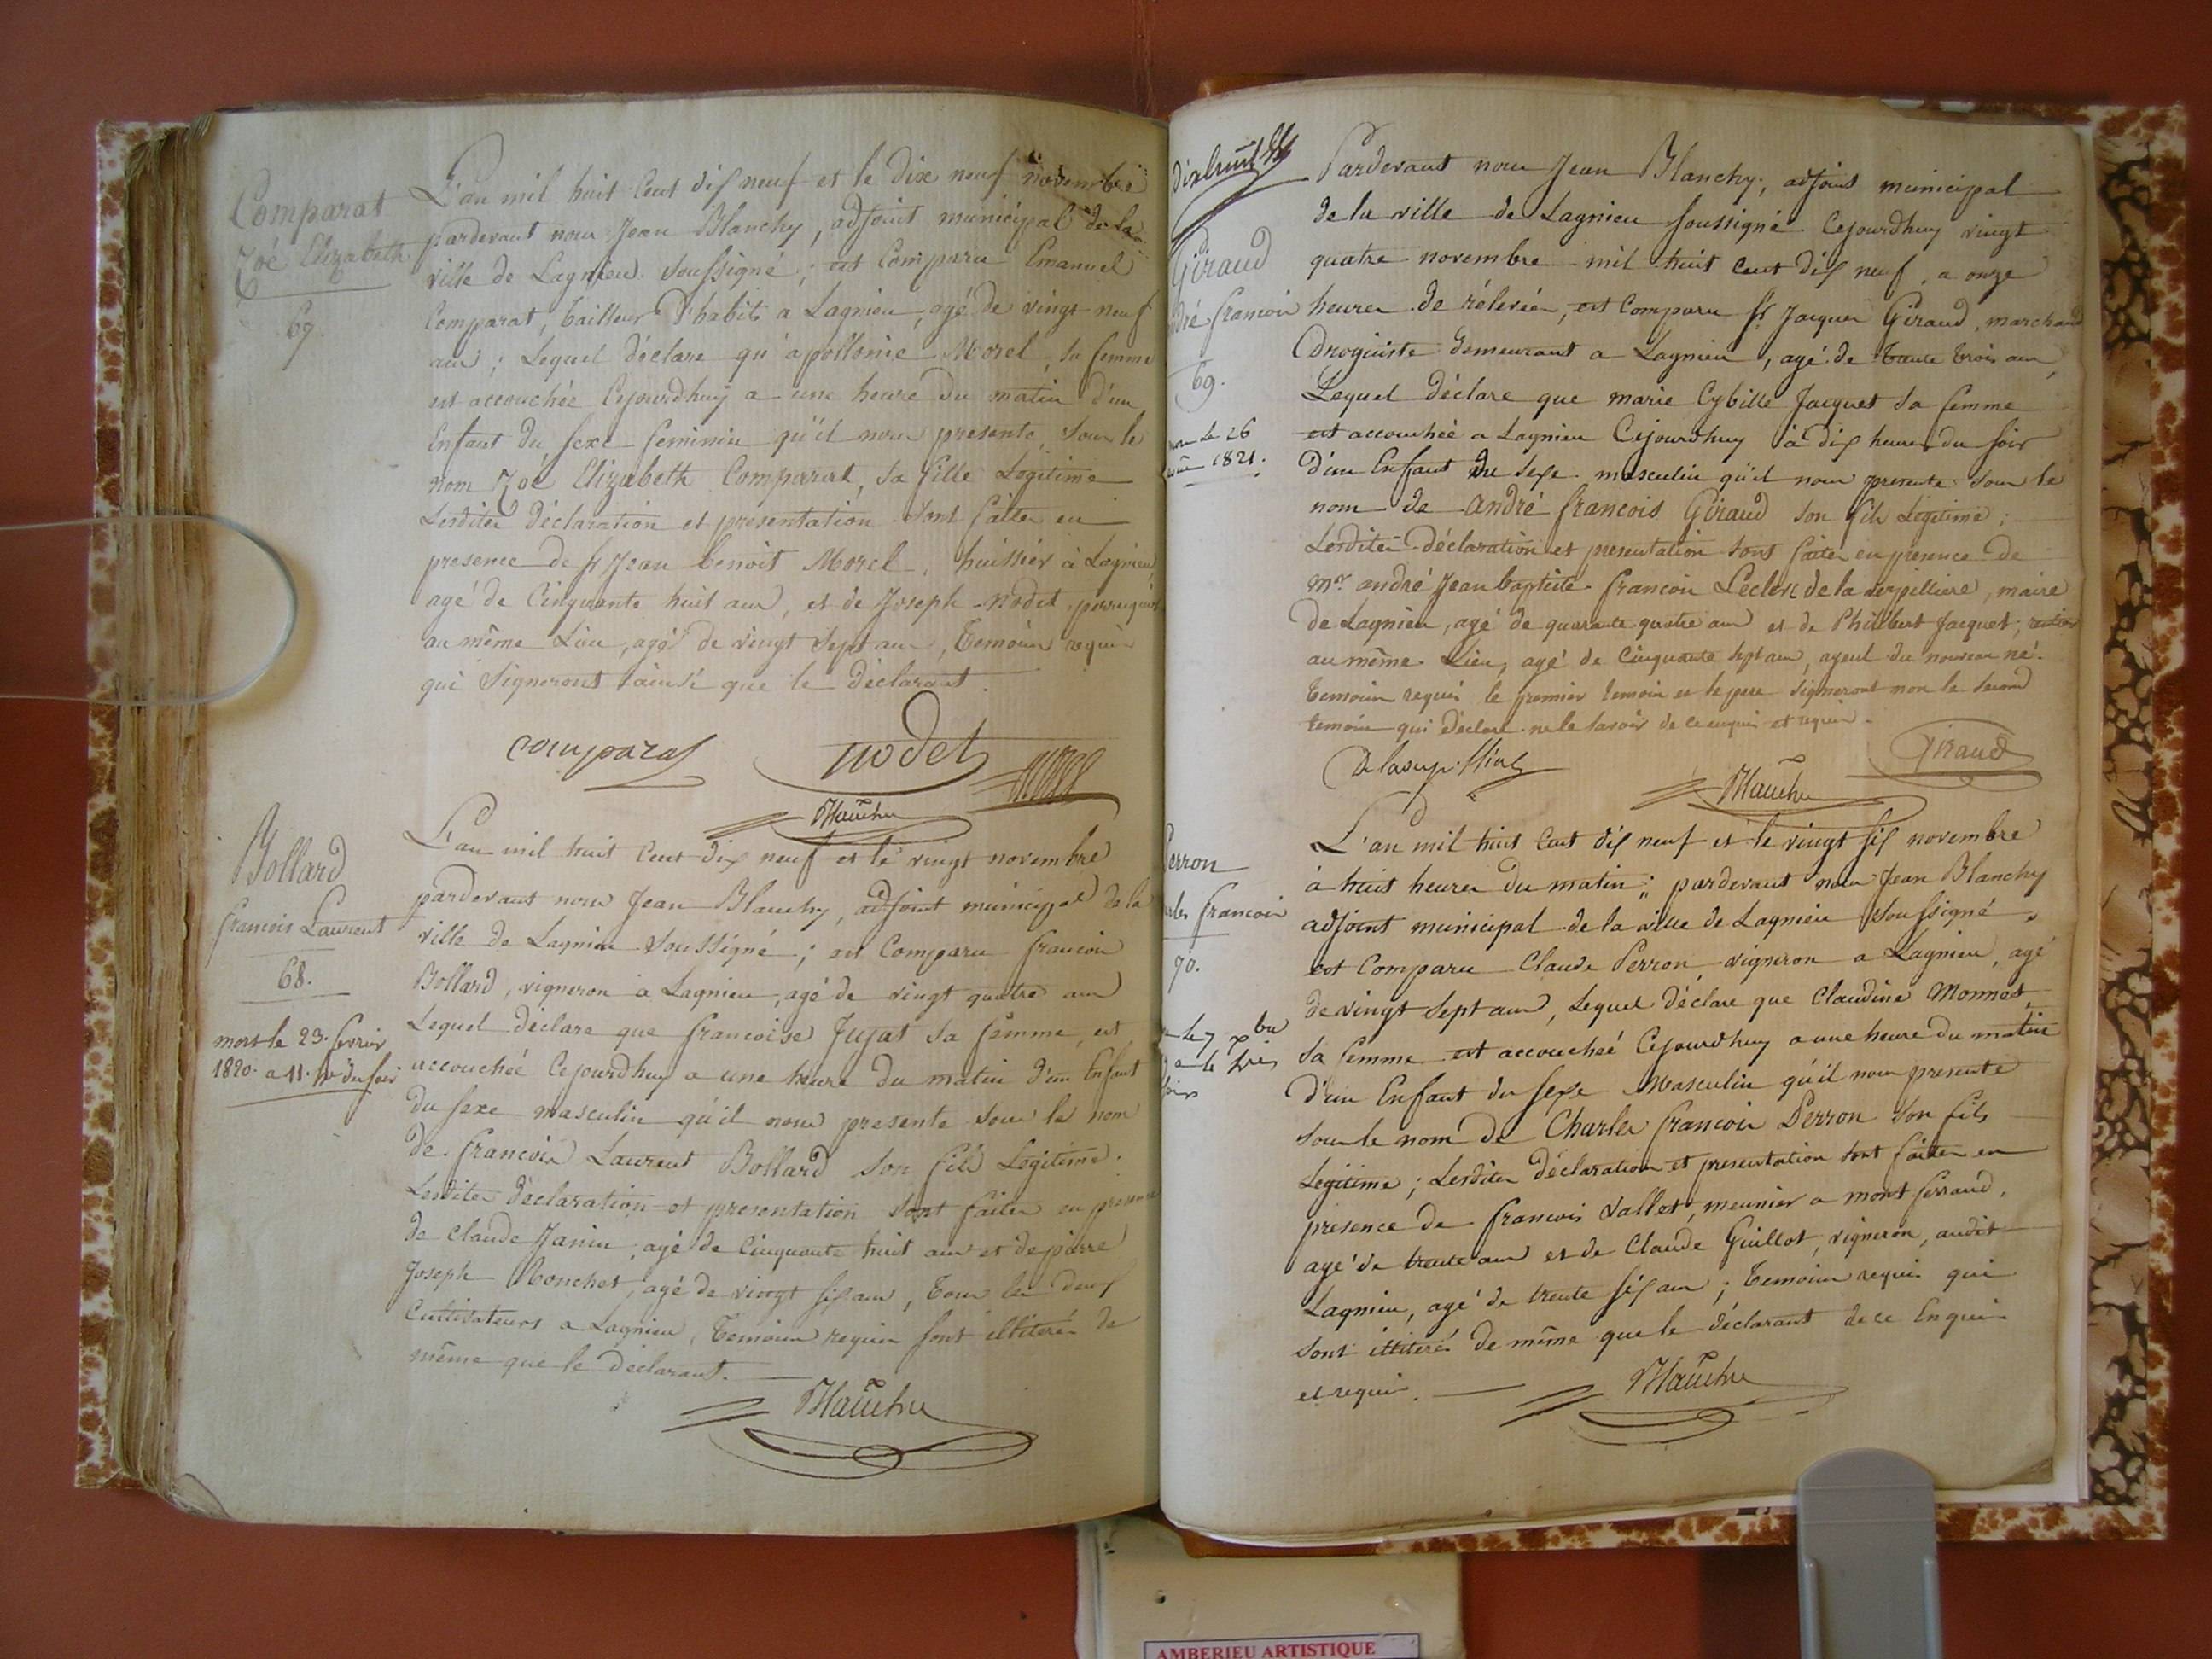 Comparat
Zoé Elizabeth
69.
L'an mil huit Cent dix neuf et le dix neuf novembre
pardevant nous Jean Blanchy, adjoint municipal de la
ville de Lagnieu soussigné; est Comparu Emanuel
Comparat, tailleur d'habits a Lagnieu, agé de vingt neuf
ans; Lequel déclare qu'apollonie Morel, sa femme
est accouchée Cejourdhuy a une heure du matin d'un
Enfant du sexe feminin qu'il nous presente, sous le
nom Zoé Elizabeth Comparat, sa fille Legitime
Lesdites déclaration et presentation sont faites en
presence de sr Jean benoit Morel, huissier à Lagnieu,
agé de Cinquante huit ans, et de Joseph Nodet, perruquier
au même Lieu, agé de vingt sept ans, Temoins requis
qui signeront ainsi que le déclarant.
comparat nodet morel
Blanchy
Bollard
francois Laurent
68.
mort le 23. fevrier
1820. a 11. hres du soir
L'an mil huit Cent dix neuf et le vingt novembre
pardevant nous Jean Blanchy, adjoint municipal de la
ville de Lagnieu soussigné; est Comparu francois
Bollard, vigneron a Lagnieu, agé de vingt quatre ans
Lequel déclare que francoise Jujat sa femme, est
accouchée Cejourdhuy a une heure du matin d'un Enfant
du sexe masculin qu'il nous presente sous le nom
de francois Laurent Bollard son fils Legitime.
Lesdites déclaration et presentation sont faites en presence
de Claude Janin, agé de Cinquante huit ans et de pierre
Joseph Ronchet, agé de vingt six ans, Tous les deux
Cultivateurs a Lagnieu, Temoins requis sont illiterés de
même que le déclarant.
Blanchy
dixhuit
Giraud
dré francois
69.
le 26
1821.
Pardevant nous Jean Blanchy, adjoint municipal
de la ville de Lagnieu soussigné. Cejourdhuy vingt
quatre novembre mil huit cent dix neuf, a onze
heures de rélevée, est Comparu sr Jacques Giraud, marchand
Droguiste demeurant a Lagnieu, agé de trente trois ans,
Lequel déclare que marie Cybille Jacquet sa femme
est accouchée a Lagnieu Cejourdhuy à dix heures du soir
d'un Enfant du sexe masculin qu'il nous presente sous le
nom de André francois Giraud son fils Légitime;
Lesdites déclaration et presentation sont faites en presence de
Mr. andré Jean baptiste francois Leclerc de la verpilliere, maire
de Lagnieu, agé de quarante quatre ans et de Philibert Jacquet,
au même Lieu, agé de Cinquante sept ans, ayeul du nouveau né.
Temoins requis le premier temoin et le pere signeront non le second
temoin qui déclare ne le savoir de ce enquis et requis.
Giraud
Blanchy
Perron
rles francois
70.
le 7 xbre
L'an mil huit Cent dix neuf et le vingt six novembre
à huit heures du matin; pardevant nous Jean Blanchy
adjoint municipal de la ville de Lagnieu soussigné
est Comparu Claude Perron, vigneron a Lagnieu, agé
de vingt sept ans, Lequel déclare que Claudine Monnet,
sa femme est accouchée Cejourdhuy a une heure du matin
d'un Enfant du sexe Masculin qu'il nous presente
sous le nom de Charles francois Perron son fils
Legitime; Lesdites déclaration et presentation sont faites en
presence de francois Vallet, meunier a mont ferrand,
agé de trente ans et de Claude Guillot, vigneron, audit
Lagnieu, agé de trente six ans; Temoins requis qui
sont illiterés de même que le déclarant de ce Enquis
et requis.
Blanchy
AMBERIEU ARTISTIQUE